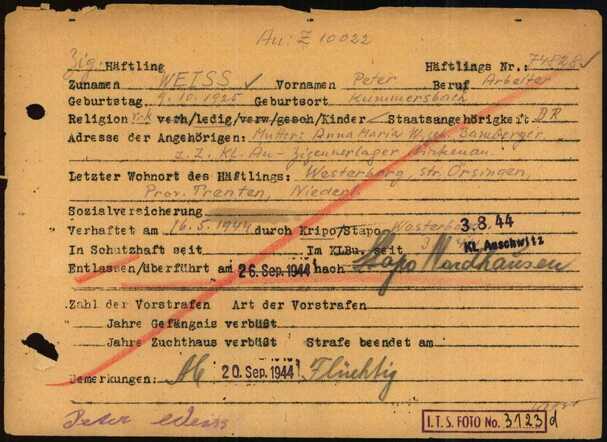 Au: Z 10022
Zig. Häftling Häftlings Nr.: 74828
Zunamen WEISS Vornamen Peter Beruf Arbeiter
Geburtstag 9.10.1925 Geburtsort Kummersbach
Religion r.k. verh/ledig/verw/gesch/Kinder Staatsangehörigkeit DR
Adresse der Angehörigen: Mutter: Anna Maria W. geb. Bamberger
z.Z. Kl. Au- Zigeunerlager Birkenau
Letzter Wohnort des Häftlings: Westerborg, str. Orsingen,
Prov. Trenten, Niederl.
Sozialversicherung
Verhaftet am 16.5.1944 durch Kripo/Stapo Westerborg 3.8.44
In Schutzhaft seit Im KLBu. seit Kl. Auschwitz
Entlassen/überführt am 26. Sep. 1944 nach Stapo Nordhausen
Zahl der Vorstrafen Art der Vorstrafen
Jahre Gefängnis verbüßt
Jahre Zuchthaus verbüßt Strafe beendet am
Bemerkungen: Ab 20 Sep. 1944 Flüchtig
Peter Weiss
I.T.S. FOTO No. 3123 d